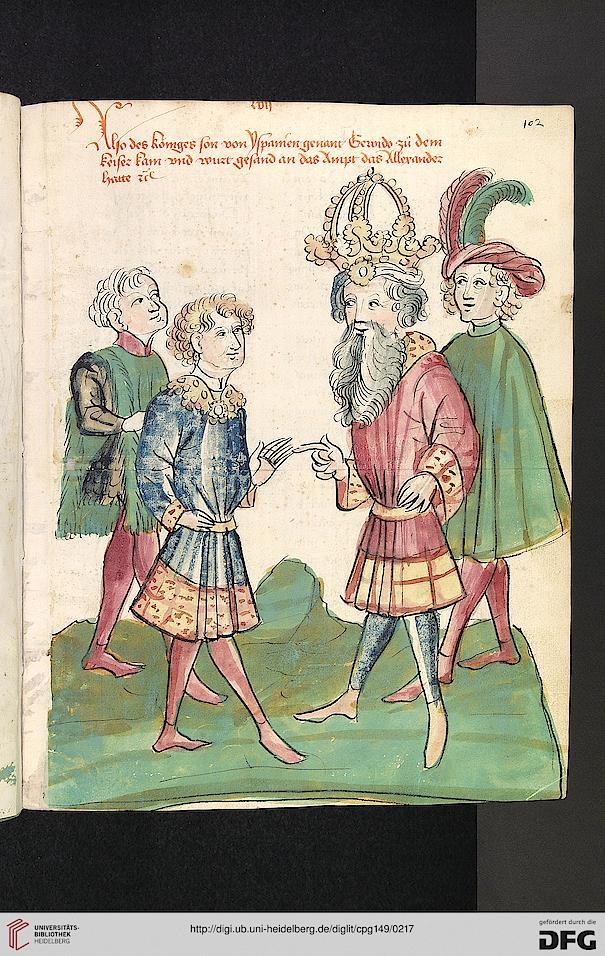 lvij
102
Also des königes son von yspanien genant Gerundo zü dem
keiser kam vnd wurt gesand an das Ampt das Allexander
hatte
UNIVERSITÄTS-
BIBLIOTHEK
HEIDELBERG
http://digi.ub.uni-heidelberg.de/diglit/cpg149/0217
gefördert durch die
DFG